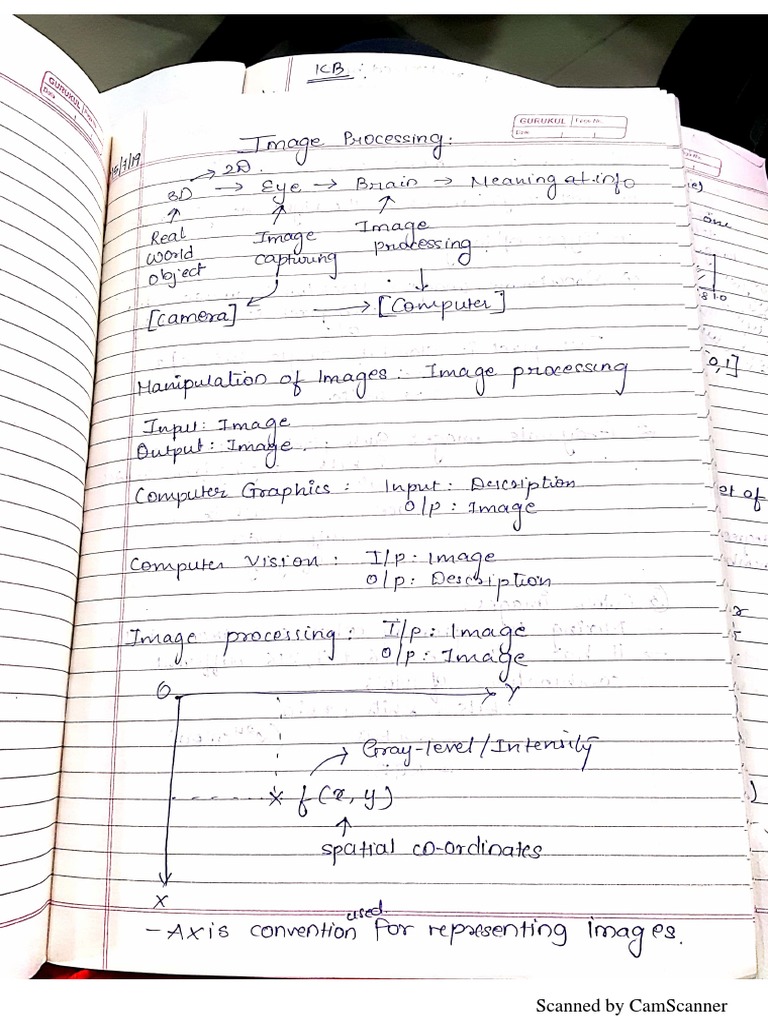 KB :
GURUKUL Page No.
Date / /
Image Processing:
15/7/19
2D.
3D → Eye → Brain → Meaning at info
Real world object
Image capturing
Image processing
[Camera] → [Computer]
Manipulation of Images : Image processing
Input: Image
Output: Image.
Computer Graphics : Input : Description
O/p : Image
Computer Vision : I/p : Image
O/p : Description
Image processing : I/p : Image
O/p : Image
O → Y
Gray-level/Intensity
f(x, y)
spatial co-ordinates
X
- Axis convention used for representing images.
GURUKUL
Date
one
0,1]
et of
Scanned by CamScanner